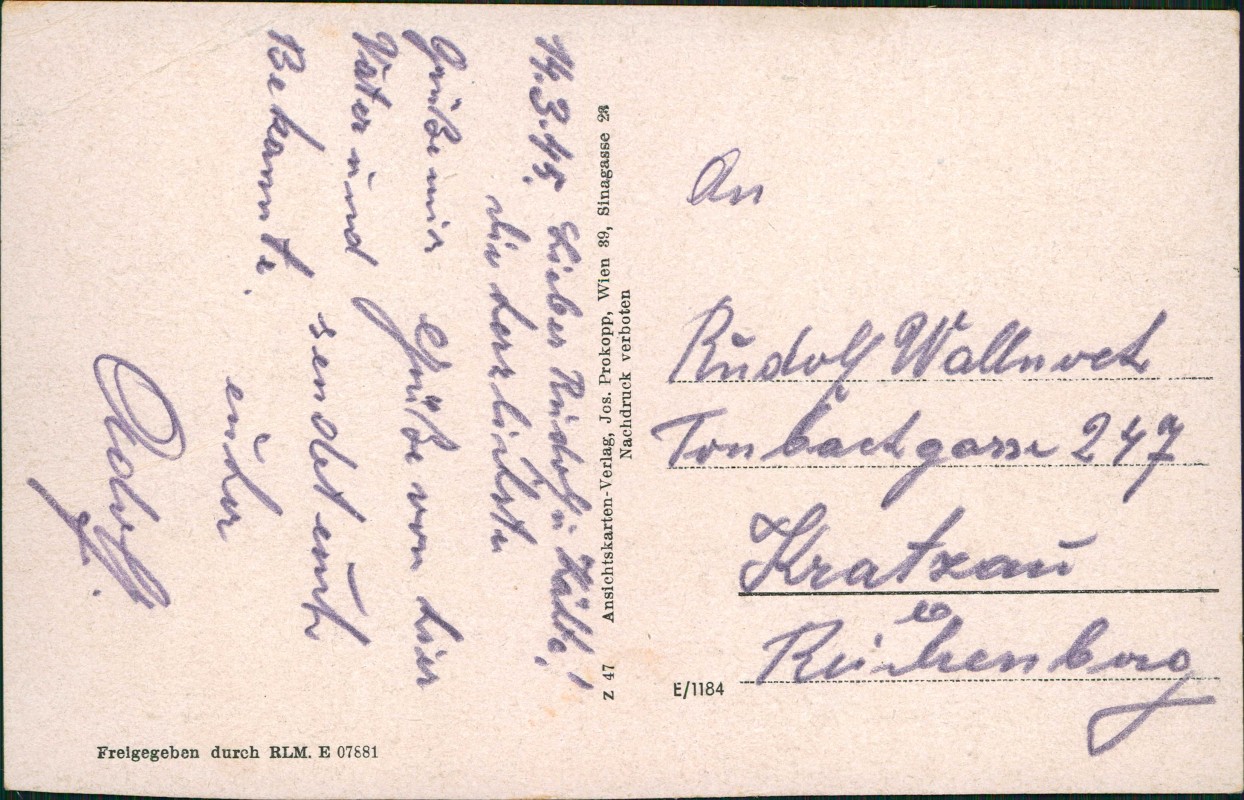 14.3.45. Lieber Rudolf u. Kätte!
die herzlichste
Grüße von hier
sendet euch
euder
Adolf.
Grüße mir
Vater und
Bekannte.
Z 47 Ansichtskarten-Verlag, Jos. Prokopp, Wien 89, Sinagasse 23
Nachdruck verboten
An
Rudolf
247
Kratzau
Reichenberg
E/1184
Freigegeben durch RLM. E 07881